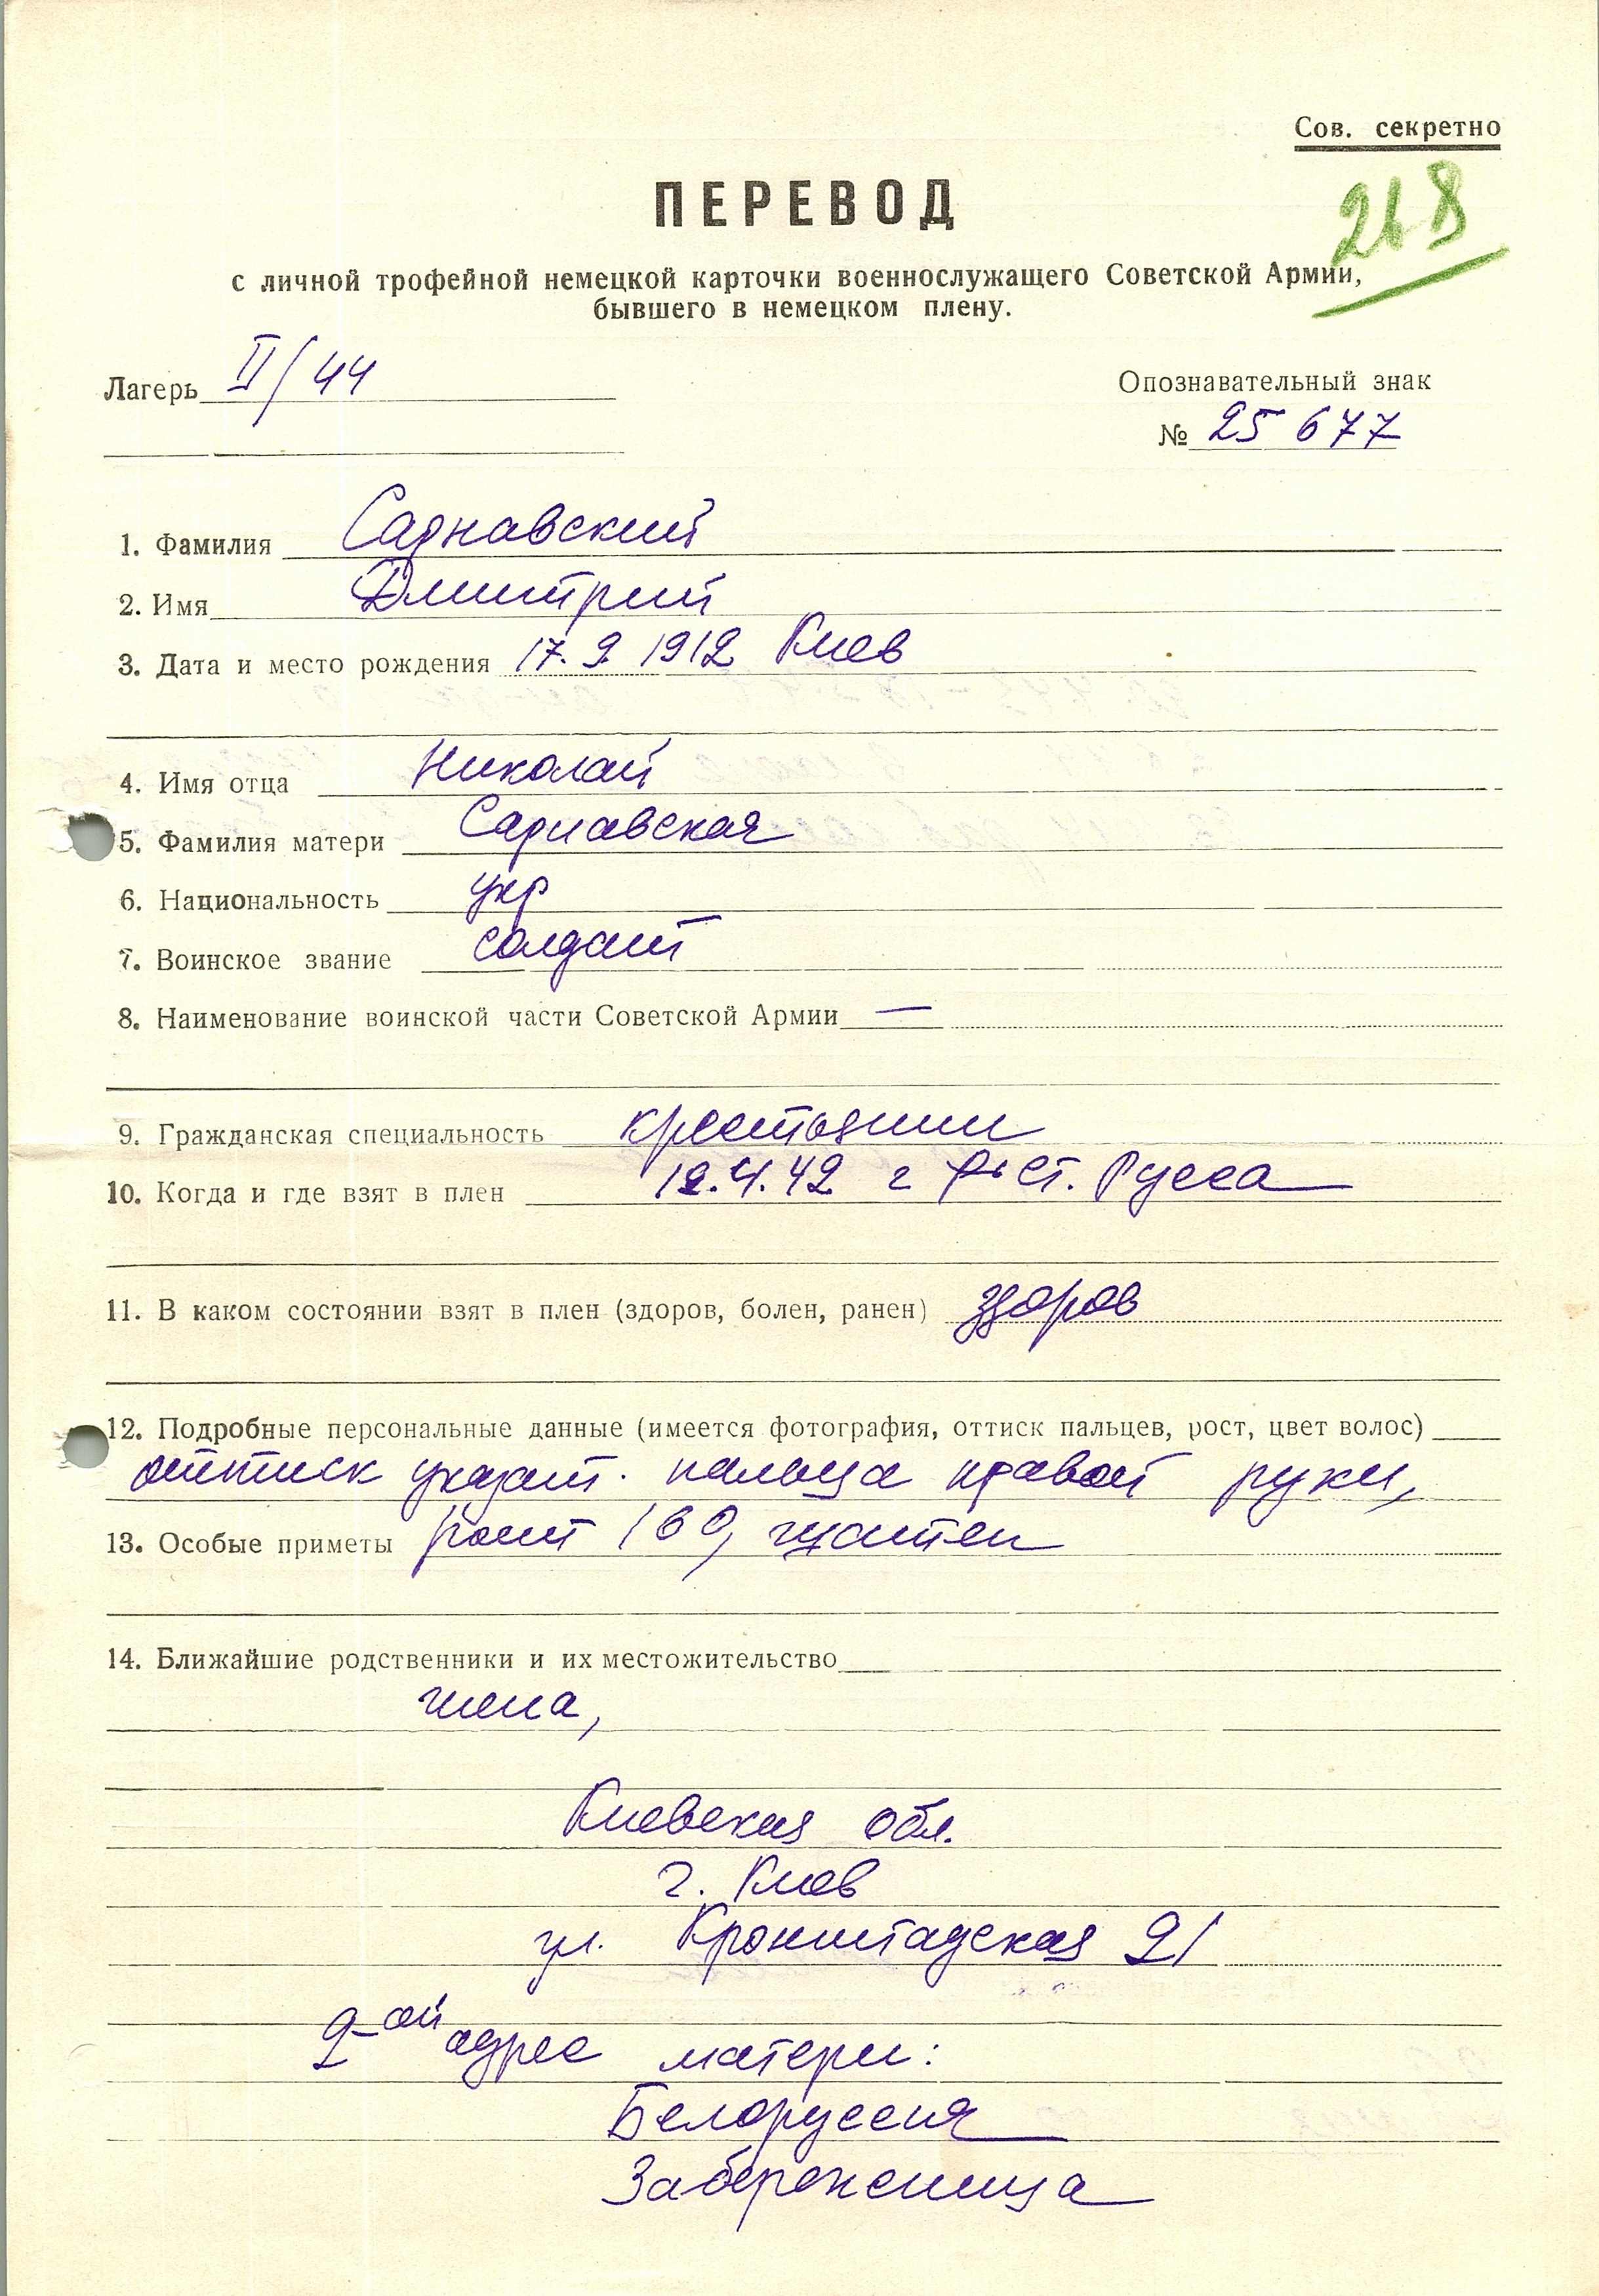 Сов. секретно
268
ПЕРЕВОД
с личной трофейной немецкой карточки военнослужащего Советской Армии,
бывшего в немецком плену.
Лагерь II/44
Опознавательный знак
№ 25 677
1. Фамилия Сарнавский
2. Имя Дмитрий
3. Дата и место рождения 17.9 1912 Киев
4. Имя отца Николай
5. Фамилия матери Сарнавская
6. Национальность укр
7. Воинское звание солдат
8. Наименование воинской части Советской Армии —
9. Гражданская специальность крестьянин
10. Когда и где взят в плен 12.4.42 г Ст. Русса
11. В каком состоянии взят в плен (здоров, болен, ранен) здоров
12. Подробные персональные данные (имеется фотография, оттиск пальцев, рост, цвет волос)
оттиск указат. пальца правой руки,
13. Особые приметы рост 169,
14. Ближайшие родственники и их местожительство
жена,
Киевская обл.
г. Киев
ул. Кронштадская 21
2-ой адрес матери:
Белоруссия